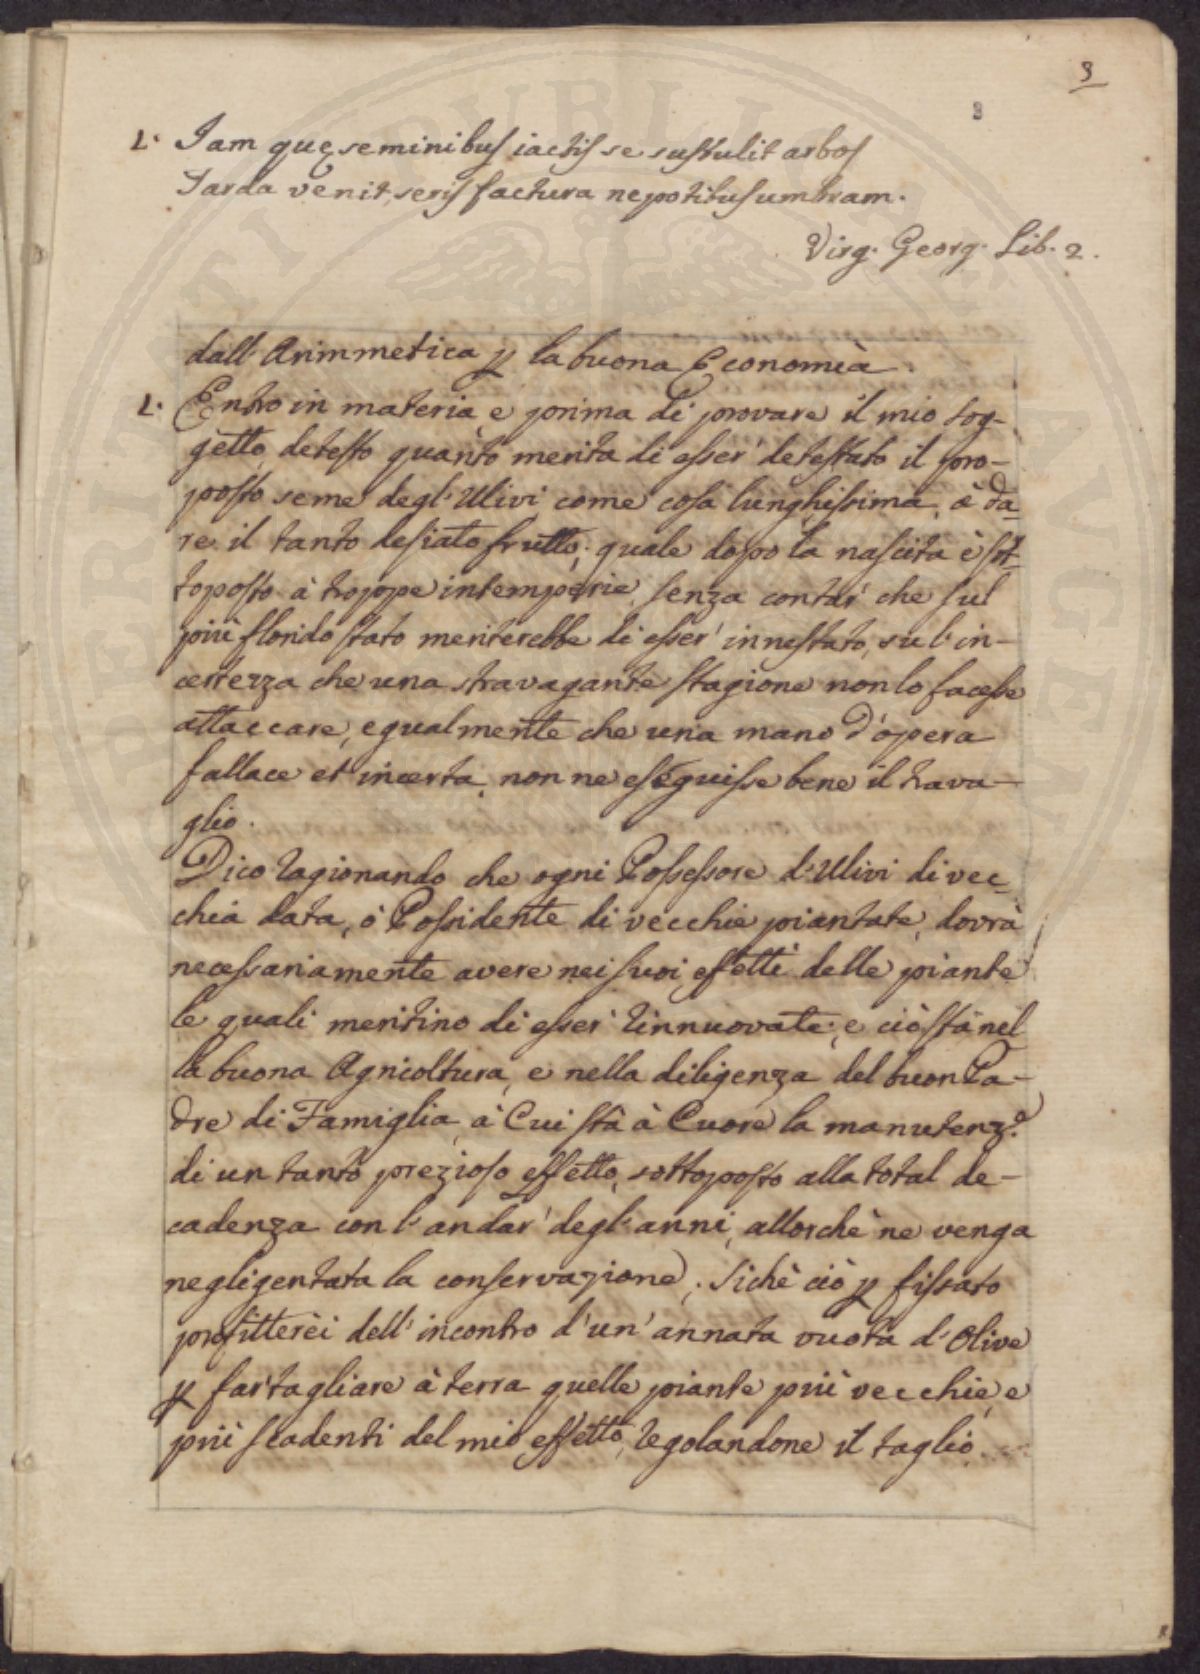 3
3
1. Iam quę seminibus iactis se sustulit arbos
Tarda venit, seris factura nepotibus umbram.
Virg. Georg. Lib. 2.
dall'Arimmetica p la buona Economià.
1. Entro in materia, e prima di provare il mio sog-
getto, detesto quanto merita di esser' detestato il pro-
posto seme degl'Ulivi come cosa lunghissima, à da-
re il tanto desiato frutto; quale dopo la nascita è sot-
toposto à troppe intemperie, senza contar' che sul
più florido stato meriterebbe di esser' innestato, sul'in-
certezza che una stravagante stagione non lo facesse
attaccare, egualmente che una mano d'opera
fallace et incerta, non ne eseguisse bene il trava-
glio.
Dico ragionando che ogni Possessore d'Ulivi di vec-
chia data, ò Possidente di vecchie piantate, dovrà
necessariamente avere nei suoi effetti delle piante
le quali meritino di esser' rinnuovate; e ciò stà nel
la buona Agricoltura, e nella diligenza del buon Pa-
dre di Famiglia, à Cui stà à Cuore la manutenz.e
di un tanto prezioso effetto, sottoposto alla total de-
cadenza con l'andar' degl'anni, allorchè ne venga
negligentata la conservazione; Sichè ciò p fissato
profitterèi dell'incontro d'un'annata vuota d'Olive
p far tagliare à terra quelle piante più vecchie, e
più scadenti del mio effetto, regolandone il taglio
PERITATI PUBLICAE AUGE